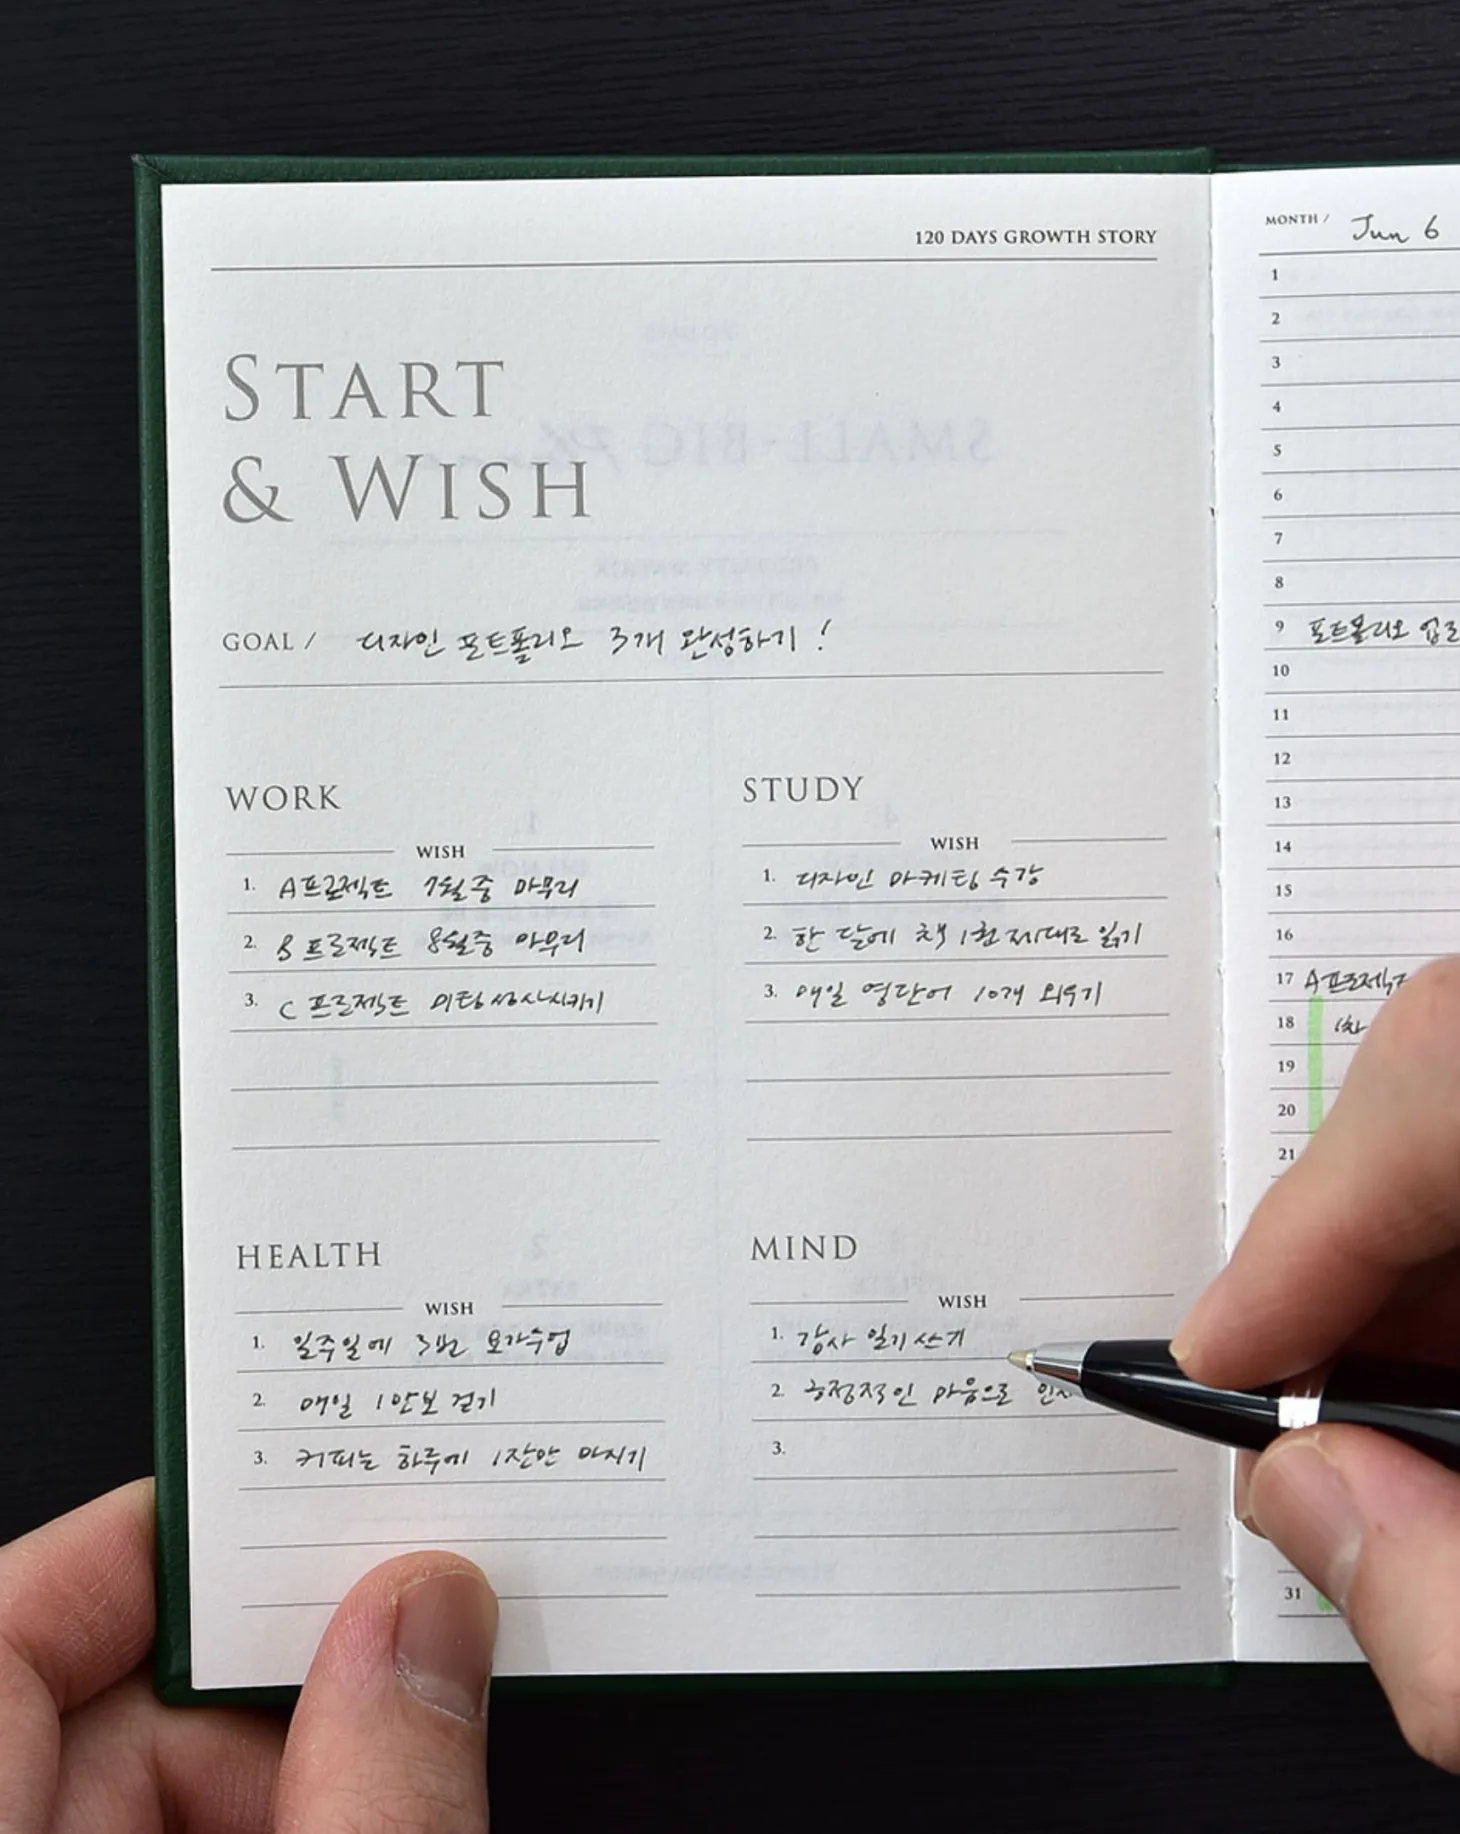 120 DAYS GROWTH STORY
START
& WISH
GOAL / 디자인 포트폴리오 3개 완성하기 !
WORK
WISH
1. A프로젝트 7월중 마무리
2. B프로젝트 8월중 마무리
3. C프로젝트 미팅성사시키기
STUDY
WISH
1. 디자인 마케팅 수강
2. 한 달에 책 1권 제대로 읽기
3. 매일 영단어 10개 외우기
HEALTH
WISH
1. 일주일에 3번 요가수업
2. 매일 1만보 걷기
3. 커피는 하루에 1잔만 마시기
MIND
WISH
1. 감사 일기쓰기
2. 긍정적인 마음으로
3.
MONTH / Jun 6
1
2
3
4
5
6
7
8
9 포트폴리오
10
11
12
13
14
15
16
17 A프로젝트
18 1차
19
20
21
31